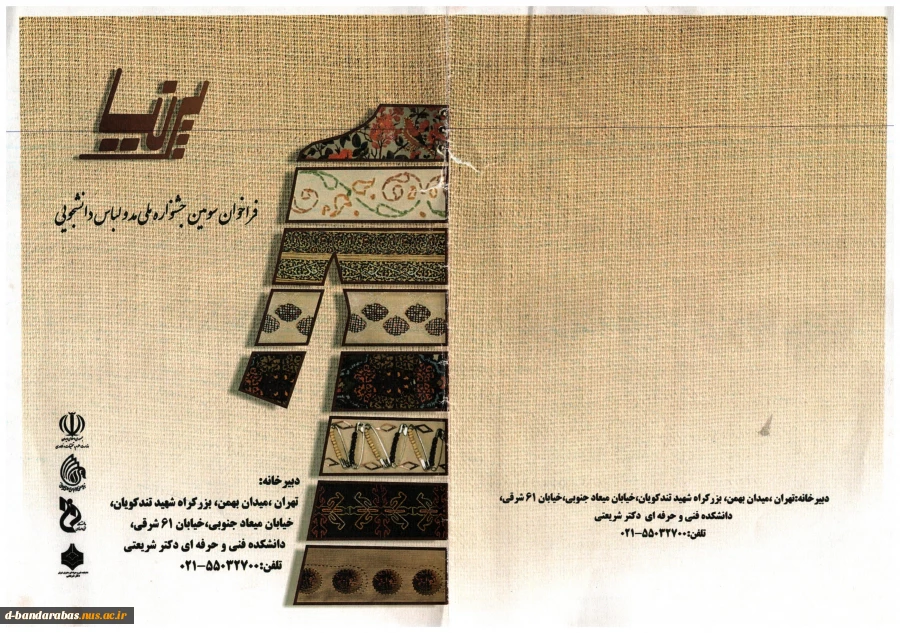 پرنیا
فراخوان سومین جشنواره ملی مد و لباس دانشجویی
دبیرخانه:
تهران ،میدان بهمن، بزرگراه شهید تندگویان،
خیابان میعاد جنوبی،خیابان ۶۱ شرقی،
دانشکده فنی و حرفه ای دکتر شریعتی
تلفن:۵۵۰۳۲۷۰۰-۰۲۱
دبیرخانه:تهران ،میدان بهمن، بزرگراه شهید تندگویان،خیابان میعاد جنوبی،خیابان ۶۱ شرقی،
دانشکده فنی و حرفه ای دکتر شریعتی
تلفن:۵۵۰۳۲۷۰۰-۰۲۱
d-bandarabas.nus.ac.ir